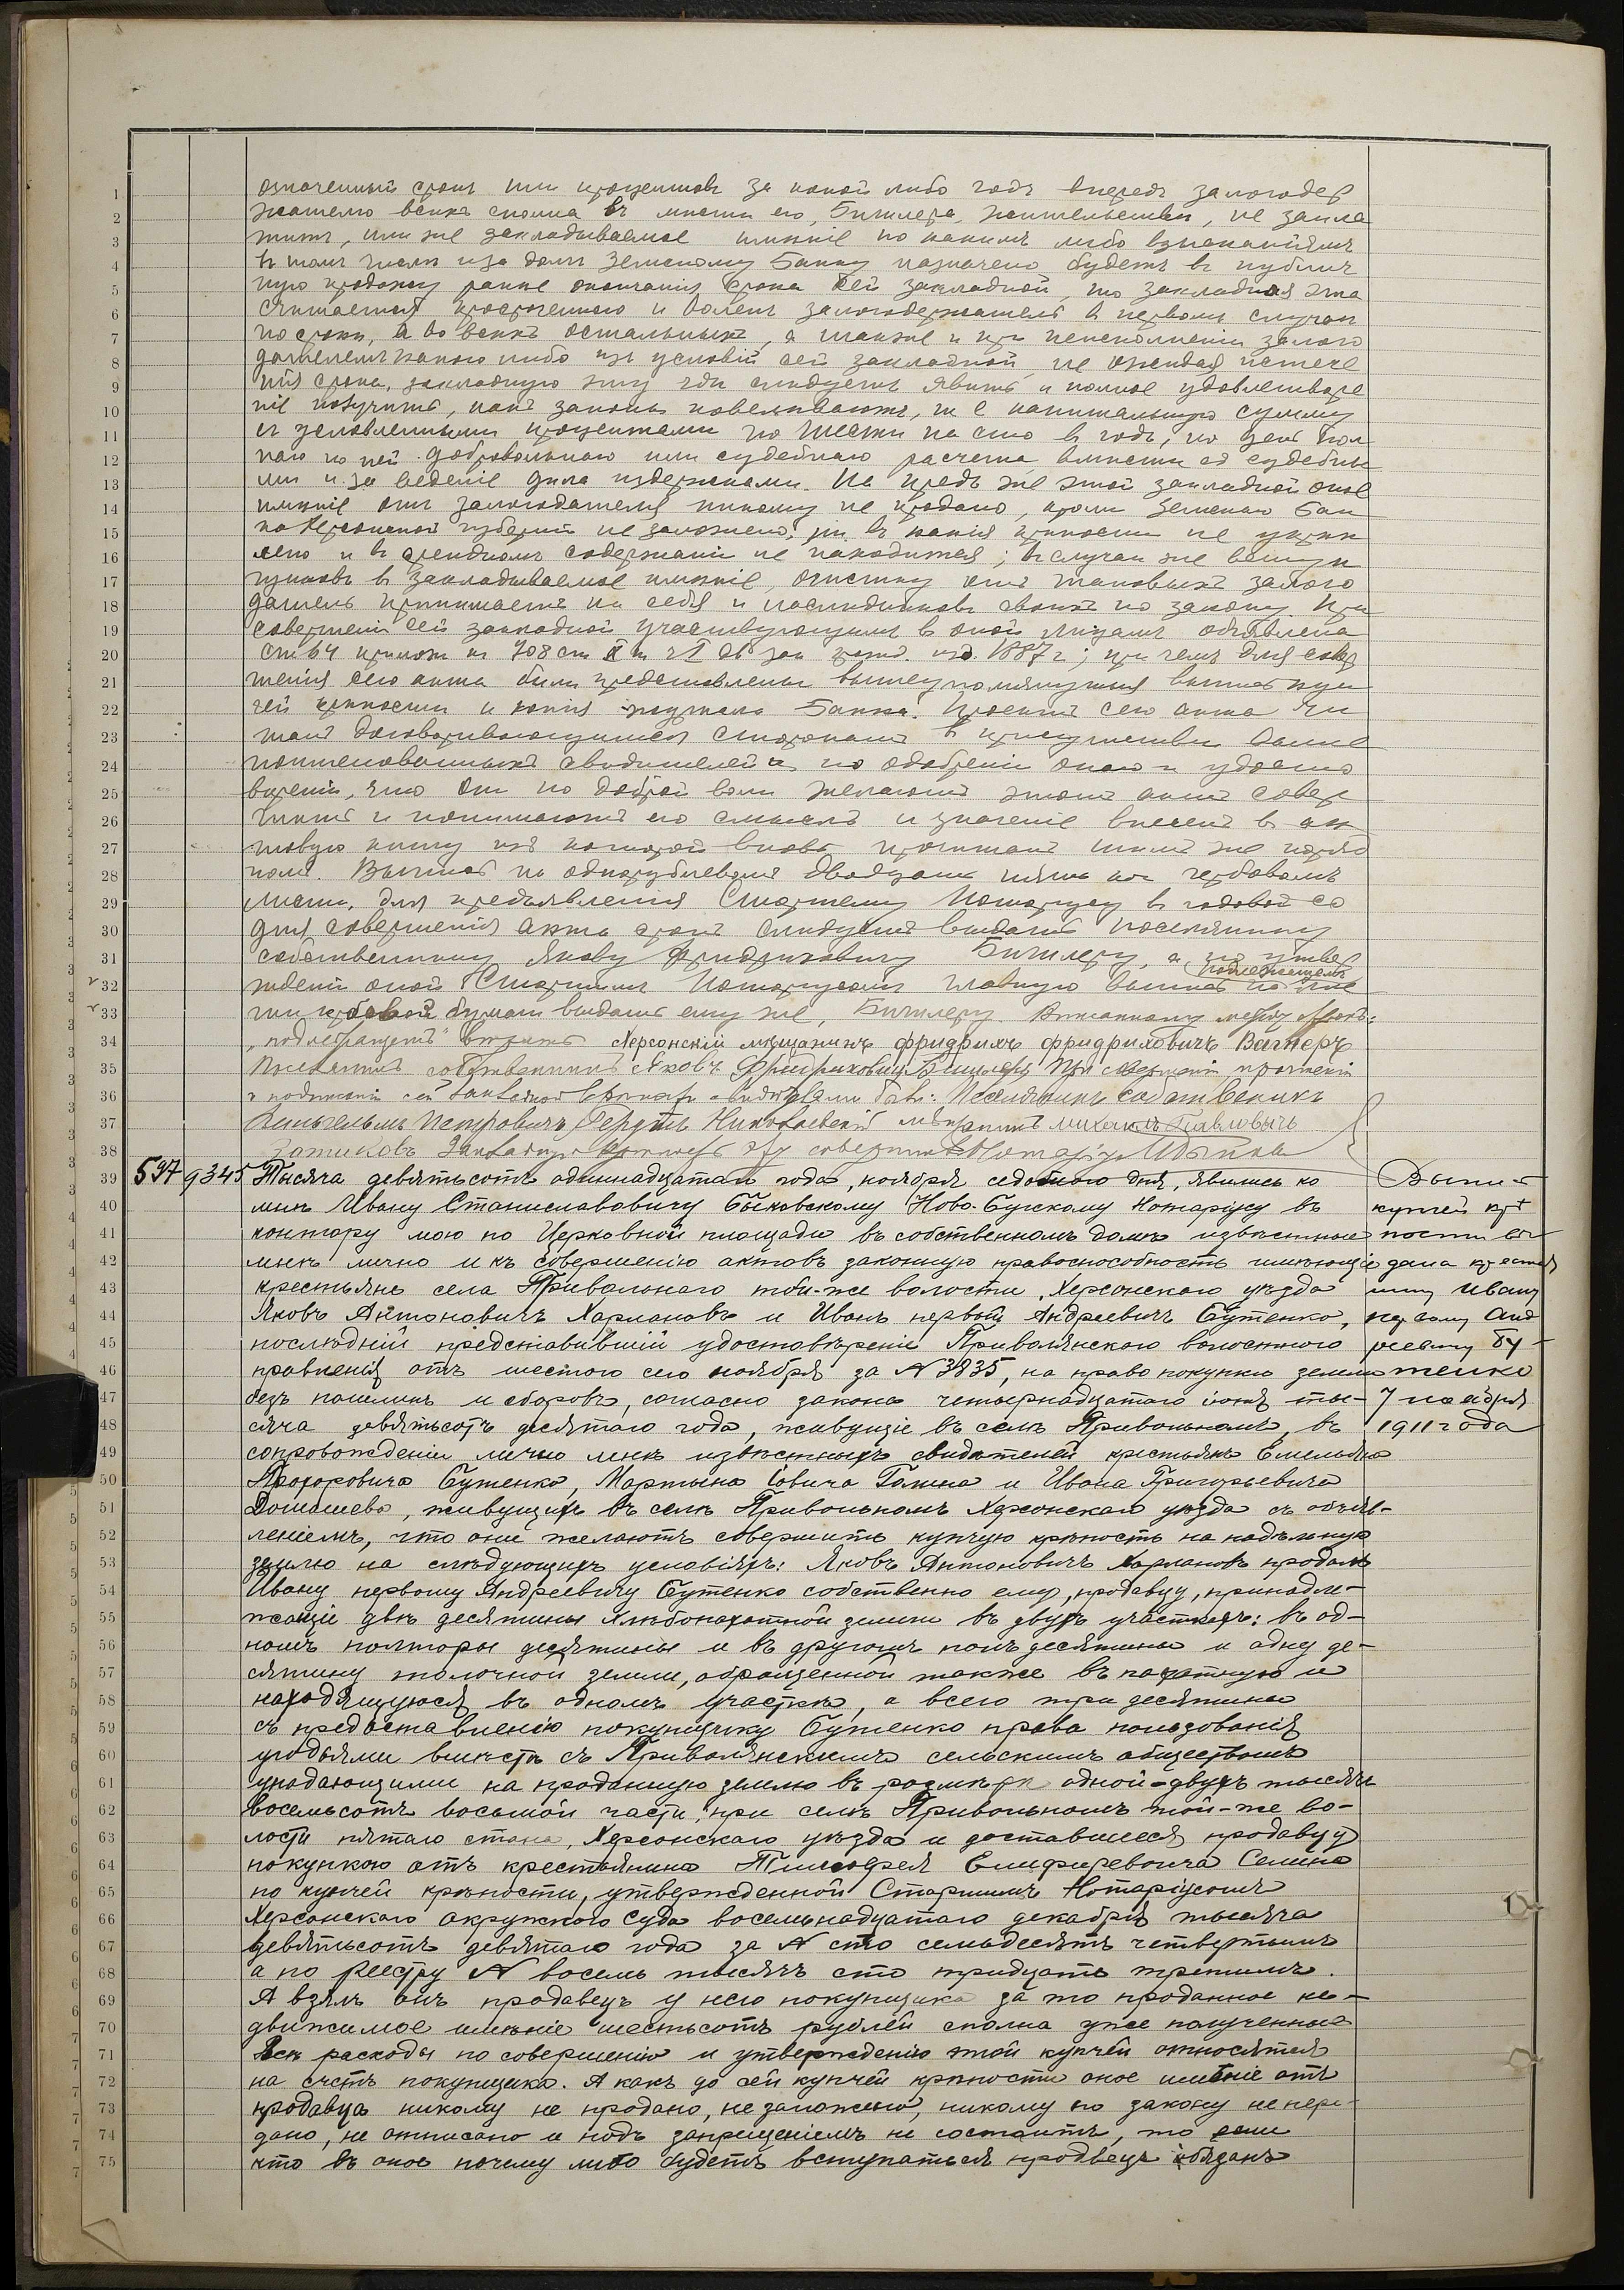 означенный срокъ или процентовъ за какой либо годъ впередъ залогодер
жателю всѣхъ сполна въ мѣстѣ его, Бишлера, жительства, не запла
титъ, или же закладываемое имѣніе по какимъ либо взысканіямъ
въ томъ числѣ и за долгъ Земскому Банку назначено будетъ въ публич
ную продажу ранѣе окончанія срока сей закладной, то закладная эта
считается просроченною и воленъ залогодержатель въ первомъ случаѣ
по срокѣ, а во всѣхъ остальныхъ, а также и при неисполненіи залого
дателемъ какого либо изъ условій сей закладной, не ожидая истече
нія срока, закладную эту гдѣ слѣдуетъ явить и полное удовлетворе
ніе получить, какъ законы повелѣваютъ, т. е. капитальную сумму
съ условленными процентами по шести на сто въ годъ, по день пол
наго по ней добровольнаго или судебнаго расчета, вмѣстѣ съ судебны
ми и за веденіе дѣла издержками. На предь же этой закладной оное
имѣніе отъ залогодателя никому не продано, кромѣ Земскаго Бан
ка Херсонской губерніи не заложено, ни въ какія крѣпости не укрѣп
лено и въ арендномъ содержаніи не находится; въ случаѣ же вступ
щиковъ въ закладываемое имѣніе, очистку отъ таковыхъ залого
датель принимаетъ на себя и наслѣдниковъ своихъ по закону. При
совершеніи сей закладной участвующимъ въ оной лицамъ объявлена
ст 64 прилож къ 708 ст X т ч I св зак гражд. изд. 1887 г; при чемъ для совер
шенія сего акта были представлены вышеупомянутыя выпись куп
чей крѣпости и копія журнала Банка. Проектъ сего акта чи
танъ договаривающимся сторонамъ въ присутствіи выше
поименованныхъ свидѣтелей и по одобреніи онаго и удосто
вѣреніи, что они по доброй волѣ желаютъ этотъ актъ совер
шить и понимаютъ его смыслъ и значеніе внесенъ въ ак
товую книгу изъ которой вновь прочитанъ тѣмъ же поряд
комъ. Выпись на однорублевомъ двадцати пяти коп гербовомъ
листѣ, для предъявленія Старшему Нотаріусу въ годовой со
дня совершенія акта срокъ слѣдуетъ выдать поселянину
собственнику Якову Фридриховичу Бишлеру, а по утвер
подлежащемъ
жденіи оной Старшимъ Нотаріусомъ главную выпись на
гербовой бумаги выдать ему же, Бишлеру. Вписанному между строкъ:
„подлежащемъ" вѣрить Херсонскій мѣщанинъ Фридрихъ Фридриховичъ Вагнеръ
Поселянинъ собственникъ Яковъ Фридриховичъ Бишлеръ При совершеніи прочтеніи
и подписаніи сей закладной крѣпости свидѣтелями были: Поселянинъ собственикъ
Вильгельмъ Петровичъ Гердтъ Николаевскій мѣщанинъ Михаилъ Павловичъ
Закладную крѣпость эту совершилъ Нотаріусъ
597 9345 Тысяча девятьсотъ одиннадцатаго года, ноября седьмого дня, явились ко
мнѣ Ивану Станиславовичу Быковскому Ново-Бугскому Нотаріусу въ
контору мою по Церковной площади въ собственномъ домѣ извѣстные
мнѣ лично и къ совершенію актовъ законную правоспособность имѣющіе
крестьяне села Привольнаго той-же волости, Херсонскаго уѣзда
Яковъ Антоновичъ Харлановъ и Иванъ первый Андреевичъ Бутенко,
послѣдній представившій удостовѣреніе Привольянскаго волостного
правленія отъ шестого сего ноября за № 3835, на право покупки земли
безъ пошлинъ и сборовъ, согласно закона четырнадцатаго іюня ты-
сяча девятьсотъ десятаго года, живущіе въ селѣ Привольномъ, въ
сопровожденіи лично мнѣ извѣстныхъ свидѣтелей крестьянъ Емельяна
Прохоровича Бутенко, Мартына Савича Галина и Ивана Григорьевича
Домашева, живущихъ въ селѣ Привольномъ Херсонскаго уѣзда съ объяв-
леніемъ, что они желаютъ совершить купчую крѣпость на надѣльную
землю на слѣдующихъ условіяхъ: Яковъ Антоновичъ Харлановъ продалъ
Ивану первому Андреевичу Бутенко собственно ему, продавцу, принадле-
жащіе двѣ десятины хлѣбопахотной земли въ двухъ участкахъ: въ од-
номъ полторы десятины и въ другомъ полъ десятины и одну де-
сятину толочной земли, обращенной также въ пахатную и
находящуюся въ одномъ участкѣ, а всего три десятины
съ предоставленію покупщику Бутенко права пользованія
угодьями вмѣстѣ съ Привольянскимъ сельскимъ обществомъ
упадающими на проданную землю въ размѣрѣ одной-двухъ тысячъ
восемьсотъ восьмой части, при селѣ Привольномъ той-же во-
лости пятаго стана, Херсонскаго уѣзда и доставшіеся продавцу
покупкою отъ крестьянина Тимофея Елифиревоича Селина
по купчей крѣпости, утвержденной Старшимъ Нотаріусомъ
Херсонскаго Окружного Суда восемьнадцатаго декабря тысяча
девятьсотъ девятаго года за № сто семьдесятъ четвертымъ
а по реестру № восемь тысячъ сто тридцать третьимъ.
А взялъ онъ продавецъ у него покупщика за то проданное не-
движимое имѣніе шестьсотъ рублей сполна уже полученные
Всѣ расходы по совершенію и утвержденію этой купчей относятся
на счетъ покупщика. А какъ до сей купчей крѣпости оное имѣніе отъ
продавца никому не продано, не заложено, никому по закону не пере-
дано, не отписано и подъ запрещеніемъ не состоитъ, то если
кто въ оное почему либо будетъ вступаться продвецъ обязанъ
Выпись
купчей крѣ
пости вы
дана крестья
нину Ивану
первому Анд
реевичу Бу-
тенко
7 ноября
1911 года